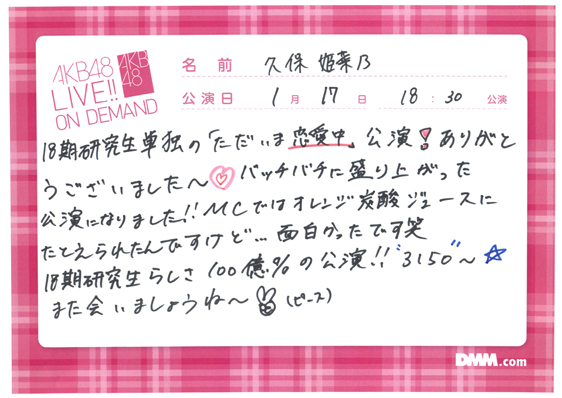 AKB48
LIVE!!
ON DEMAND
AKB
48
名前 久保 姫菜乃
公演日 1月 17日 18:30 公演
18期研究生単独の「ただいま恋愛中」公演!ありがと
うございました〜♡バッチバチに盛り上がった
公演になりました!!MCではオレンジ炭酸ジュースに
たとえられたんですけど…面白かったです笑
18期研究生らしさ100億%の公演!!"3150"〜☆
また会いましょうね〜(ピース)
DMM.com